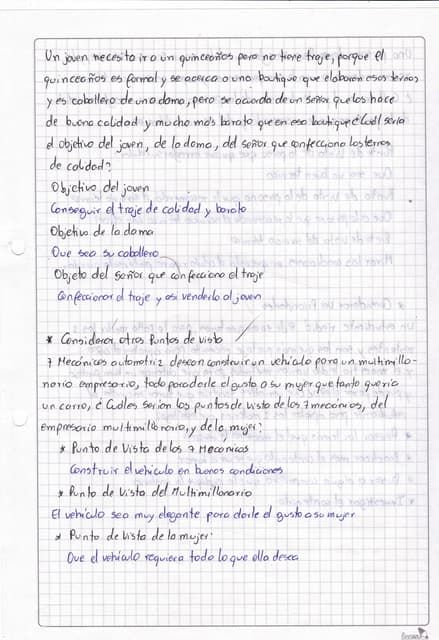 Un joven necesita ir a un quinceaños pero no tiene traje, porque el
quinceaños es formal y se acerca a una boutique que elaboran esos ternos
y es caballero de una dama, pero se acuerda de un señor que los hace
de buena calidad y mucho más barato que en esa boutique ¿Cuál sería
el objetivo del joven, de la dama, del señor que confecciona los ternos
de calidad?
Objetivo del joven
Conseguir el traje de calidad y barato
Objetivo de la dama
Que sea su caballero
Objeto del señor que confecciona el traje
Confeccionar el traje y así venderlo al joven
* Considerar otros Puntos de vista
7 Mecánicos automotriz desean construir un vehículo para un multimillo-
nario empresario, todo para darle el gusto a su mujer que tanto quería
un carro, ¿Cuáles serían los puntos de vista de los 7 mecánicos, del
empresario multimillonario, y de la mujer?
* Punto de Vista de los 7 Mecánicos
Construir el vehículo en buenas condiciones
* Punto de Vista del Multimillonario
El vehículo sea muy elegante para darle el gusto a su mujer
* Punto de Vista de la mujer:
Que el vehículo requiera todo lo que ella desea